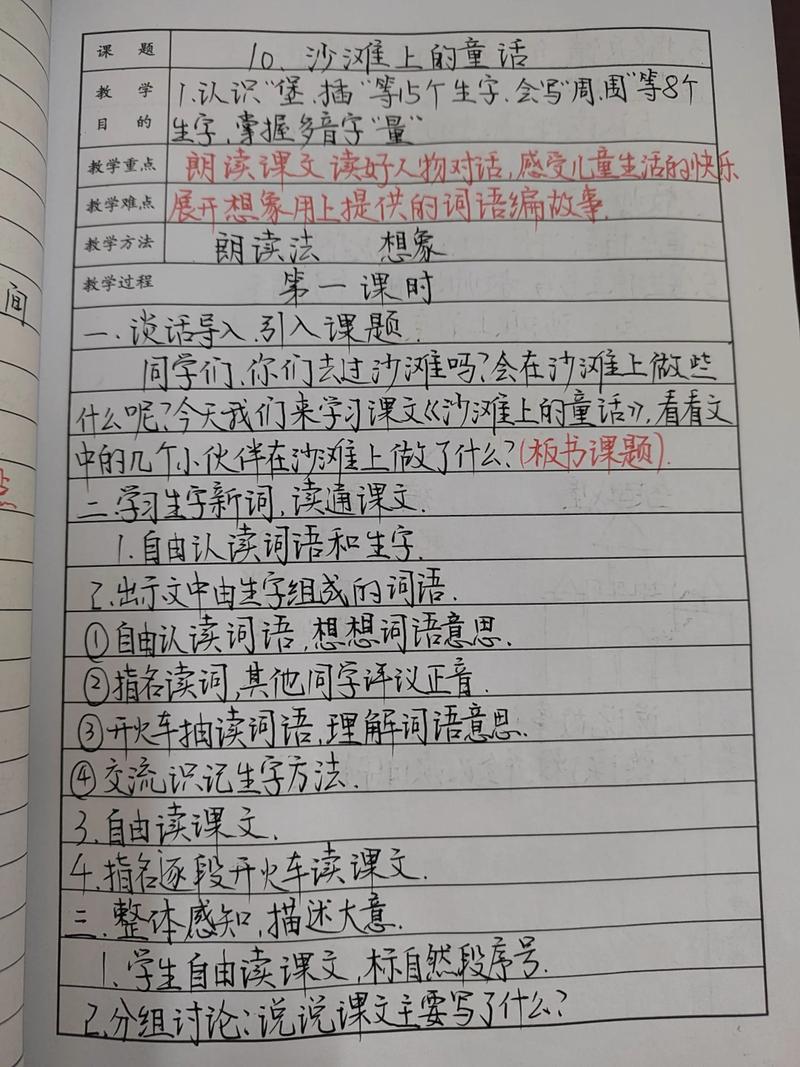 课 题 10、沙滩上的童话
教 学 1.认识“堡、插”等15个生字.会写“周、围”等8个
目 的 生字,掌握多音字“量”
教学重点 朗读课文 读好人物对话,感受儿童生活的快乐
教学难点 展开想象用上提供的词语编故事.
教学方法 朗读法 想象
教学过程 第一课时
间
一.谈话导入.引入课题.
同学们、你们去过沙滩吗?会在沙滩上做些
什么呢?今天我们来学习课文《沙滩上的童话》,看看文
中的几个小伙伴在沙滩上做了什么?(板书课题).
二.学习生字新词,读通课文.
1.自由认读词语和生字.
2.出示文中由生字组成的词语.
①自由认读词语,想想词语意思.
②指名读词,其他同学评议正音.
③开火车抽读词语,理解词语意思.
④交流识记生字方法.
3.自由读课文.
4.指名逐段开火车读课文.
三.整体感知,描述大意.
1.学生自由读课文,标自然段序号.
2.分组讨论:说说课文主要写了什么?